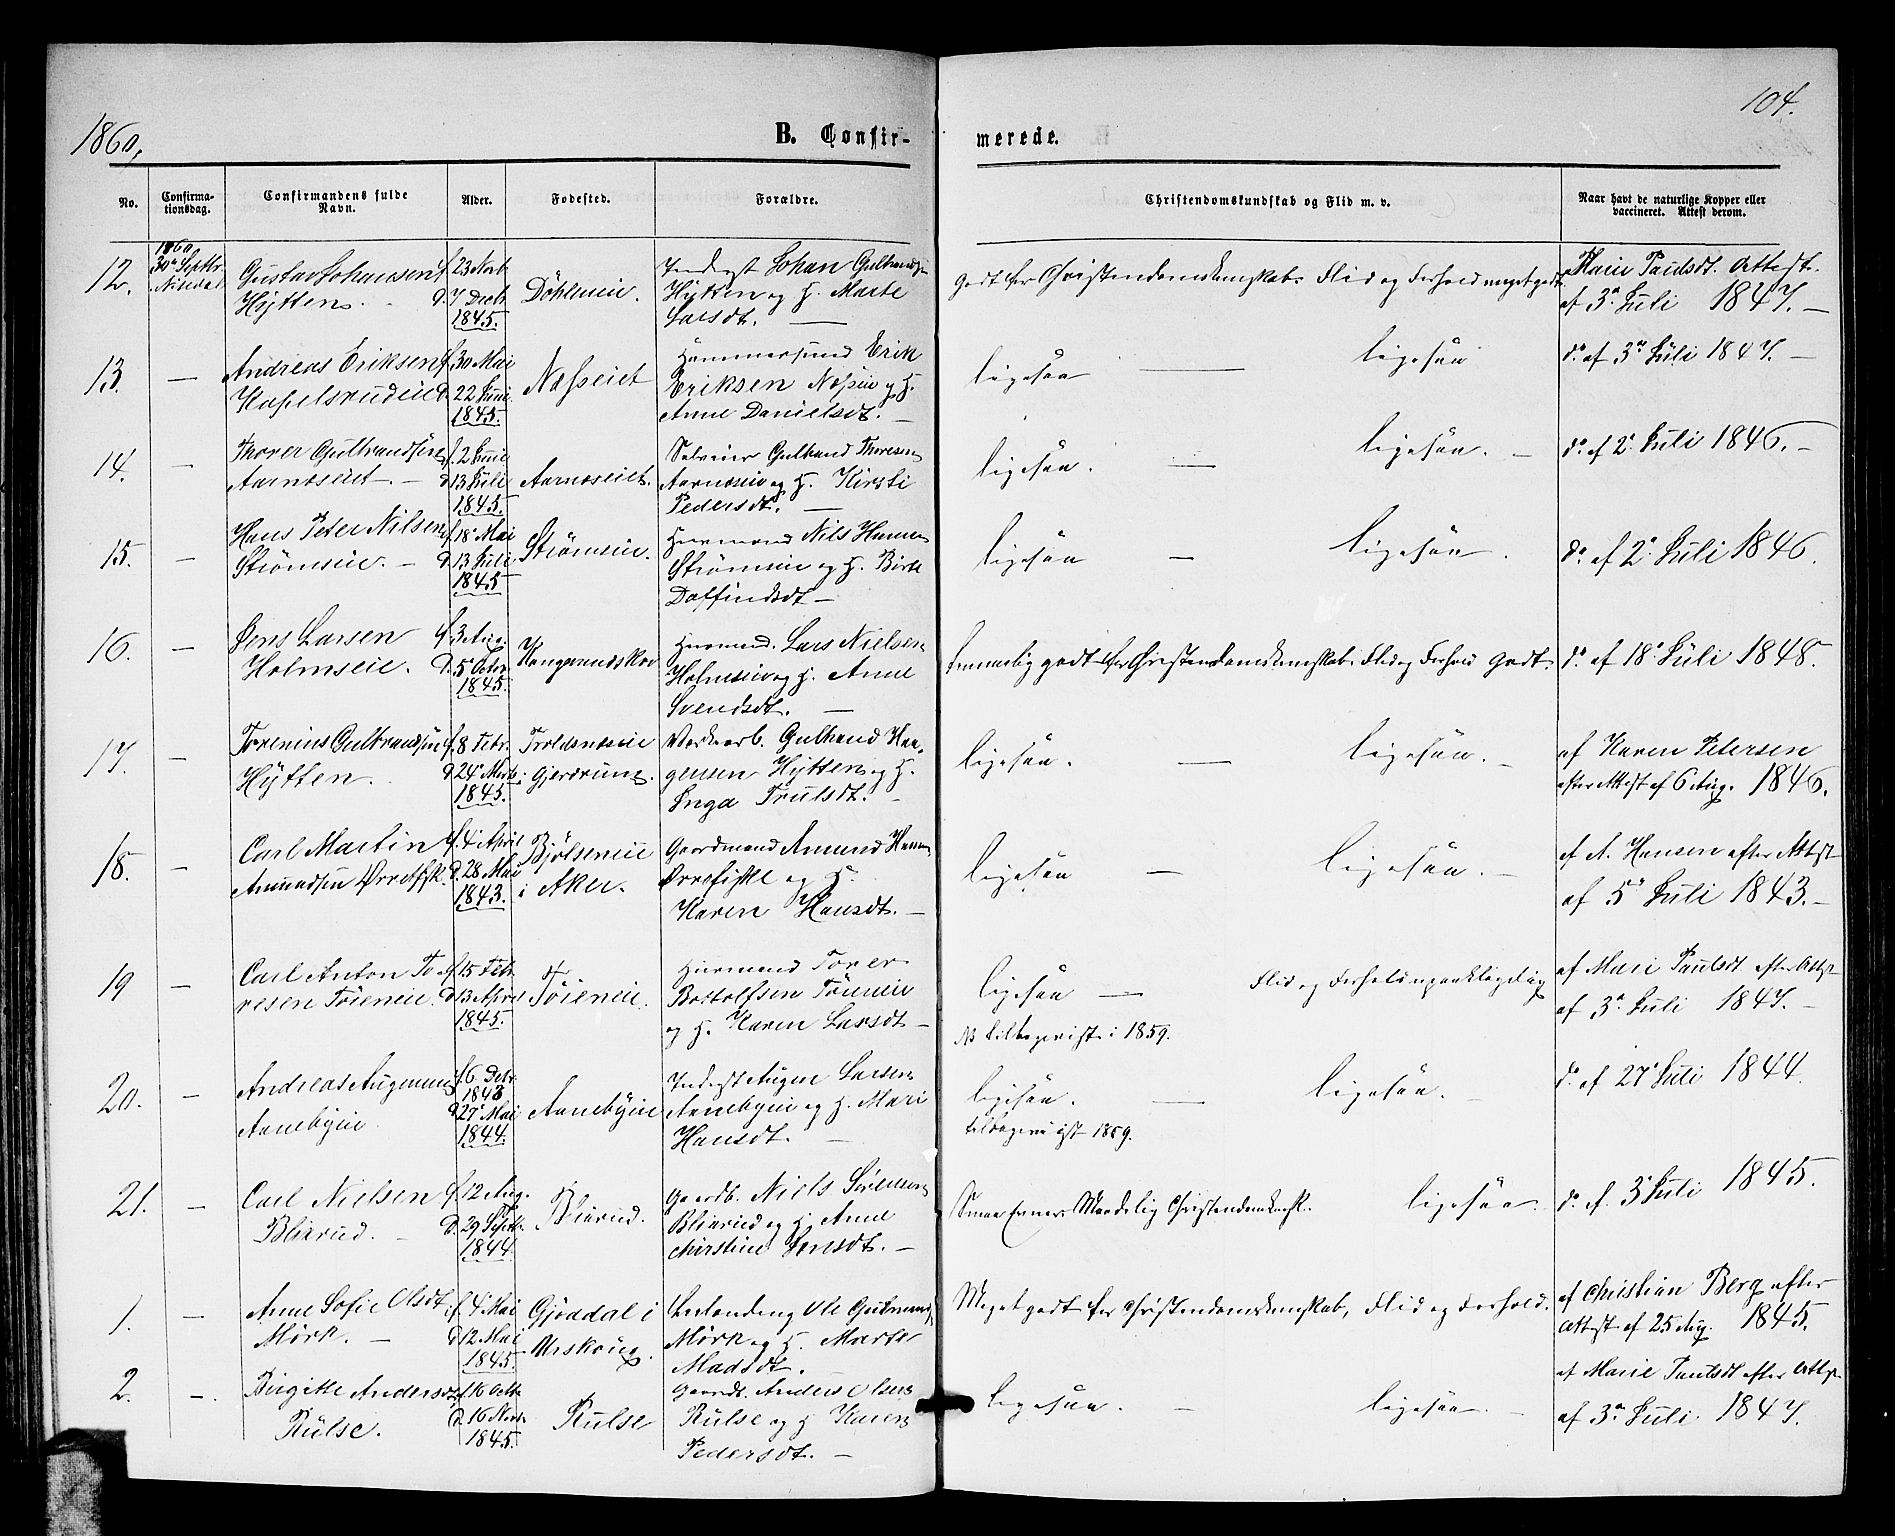 104.
1860,
B. Confir-
merede.
No.
Confirma-
tionsdag.
Confirmandens fulde
Navn.
Alder.
Fødested.
Forældre.
Christendomskundskab og Flid m. v.
Naar havt de naturlige Kopper eller
vaccineret. Attest derom.
12.
1860
30te Septbr.
Nitedal
Gustav Johansen
Hytten.
f. 23 Novb
d. 7 Decbr
1845.
Döhleneie.
Inderst Johan Gulbrands.
Hytten og H. Marte
Larsdt. —
Godt for Christendomskundskab. Flid og Forhold meget godt
Marie Paulsdt. Attest.
af 3die Juli 1847. —
13.
—
Andreas Eriksen
Kapelsrudeie
f. 30 Mai
d. 22 Juni
1845.
Næsseiet
Erik
Eriksen Næsseie og H.
Anne Danielsdt. —
ligesaa —
ligesaa
do. af 3die Juli 1847. —
14.
—
Thorer Gulbrandsen
Aarnæseiet —
f. 2 Juni
d. 13 Juli
1845.
Aarnæseiet.
Gulbrand Thoresen
Aarnæseie og H. Kirsti
Pedersdt. —
ligesaa. —
ligesaa. —
do. af 2 Juli 1846. —
15.
—
Hans Peter Nilsen
Strömseie. —
f. 18 Mai
d. 13 Juli
1845
Strömseie.
Huusmand Nils Hansen
Strömseie og H. Birte
Daffindsdt —
ligesaa —
ligesaa.
do. af 2 Juli 1846.
16.
—
Jens Larsen
Holmseie.
f. 3 Aug.
d. 5 Octbr.
1845.
Kongsrundskov
Huusmd. Lars Nielsen
Holmseie og H. Anne
Svendsdt. —
Temmelig godt for Christendomskundskab. Flid og Forhold godt.
do. af 18 Juli 1848.
17.
—
Torenius Gulbrandsen
Hytten.
f. 8 Febr.
d. 24 Marts
1845.
Troldsnæseie
i Gjerdrum.
Værksarb. Gulbrand Haa-
gensen Hytten og H.
Inga Trulsdt. —
ligesaa. —
ligesaa. —
af Karen Petersen
efter Attest af 6 Aug. 1846.
18.
—
Carl Martin
Amundsen Örrefisk.
f. 4 April
d. 28 Mai
1843.
Bjölseneie
i Aker.
Gaardmand Amund Hansen
Örrefiske og H.
Karen Hansdt. —
ligesaa —
ligesaa. —
af A. Hansen efter Attest
af 5 Juli 1843. —
19
—
Carl Anton To-
resen Töieneie.
f. 15 Febr.
d. 13 April
1845.
Töieneie.
Huusmand Torer
Bottolfsen Töieneie
og H. Karen Larsdt —
ligesaa —
NB tilbagevist i 1859.
Flid og Forhold upaaklagelig
af Mari Paulsdt efter Attest
af 3die Juli 1847. —
20.
—
Andreas Augensen
Aanebyeie.
f. 6. Decbr.
1843
d. 27 Mai
1844.
Aanebyeie
Inderst Augen Larsen
Aanebyeie og H. Mari
Hansdt. —
ligesaa. —
tilbagevist 1859.
ligesaa. —
do. af 27 Juli 1844.
21.
—
Carl Nielsen
Blixrud. —
f. 12 Aug.
d. 29 Septbr.
1844
Blixrud.
Gaardb. Niels Sörensen
Blixrud og H. Anne
Kirstine Jensdt. —
Smaa Evner. Maadelig Christendomskundsk.
ligesaa.
do. af. 3 Juli 1845.
1.
—
Anne Sofie Olsdt.
Mörk. —
f. 4 Mai
d. 12 Mai
1845.
Gjöadal i
Urskoug.
Ole Gulbrands.
Mörk og H. Marte
Madsdt. —
Meget godt for Christendomskundskab, Flid og Forhold.
af Christian Berg efter
Attest af 25 Aug. 1845.
2.
—.
Birgitte Andersdt
Rulse.
f. 16 Octbr
d. 16 Novb.
1845.
Rulse
Gaardb. Anders Olsen
Rulse og H. Karen
Pedersdt. —
ligesaa. —
ligesaa. —
af Marie Paulsdt efter Attest
af 3die Juli 1847.